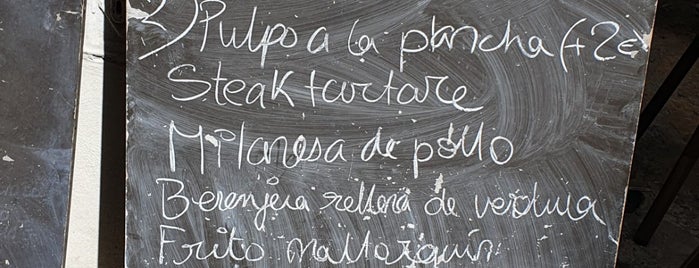 2) Pulpo a la plancha (+2€
Steak tartare
Milanesa de pollo
Berenjena rellena de verdura
Frito mallorquín